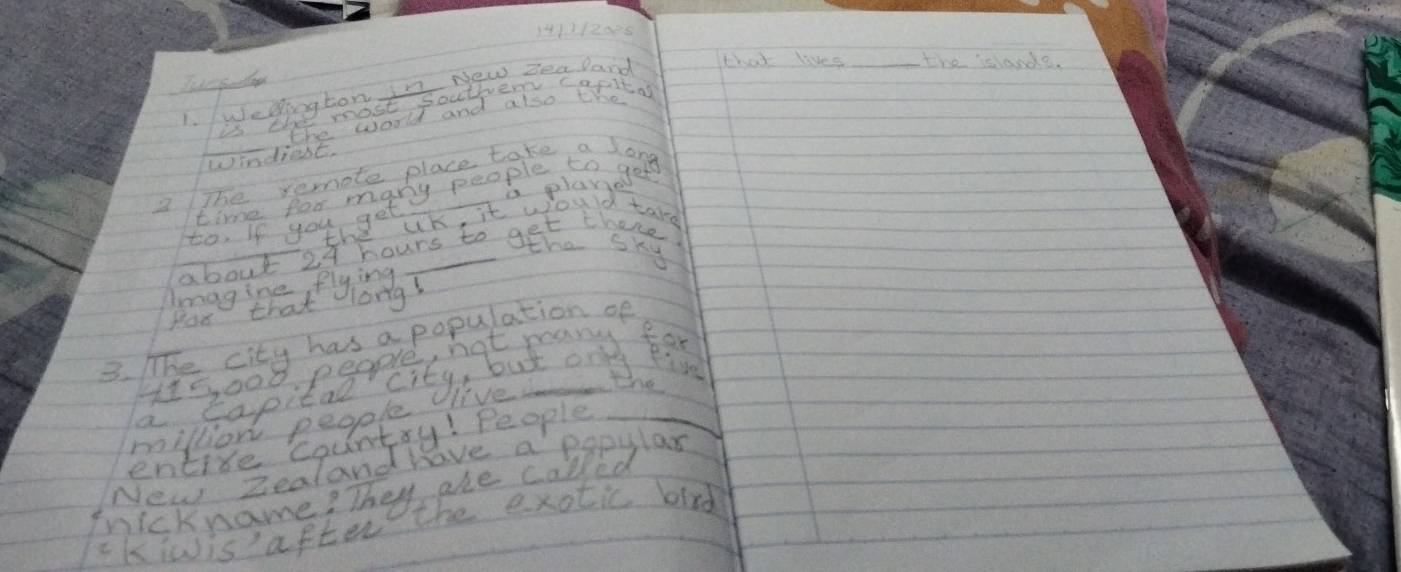 14/1/2025
Tuesday
1. Wellington in New Zealand
is the most Southern Capital
____ the world and also the
windiest.
2 The remote place take a long
time for many people to get
to. If you get ____ a plane
____ the UK, it would take
about 24 hours to get there.
Imagine flying ____ the sky
for that long!
3. The city has a population of
415,000 people, not many for
a capital city, but only five
million people live ____ the
entire country! People ____
New Zealand have a popular
nickname: They are called
'Kiwis' after the exotic bird
that lives ____ the islands.